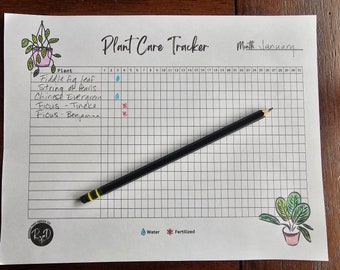 Plant Care Tracker
Month: January
Plant 1 2 3 4 5 6 7 8 9 10 11 12 13 14 15 16 17 18 19 20 21 22 23 24 25 26 27 28 29 30 31
Fiddle fig leaf
String of Pearls
Chinese Evergreen
Ficus - Tineke
Ficus - Benjamina
Water Fertilized